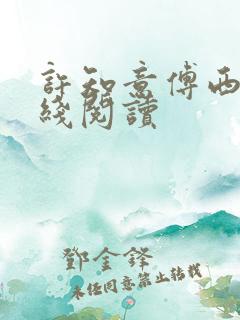 許知意傅西
綫閱讀
鄧金鋒
未經同意禁止轉載